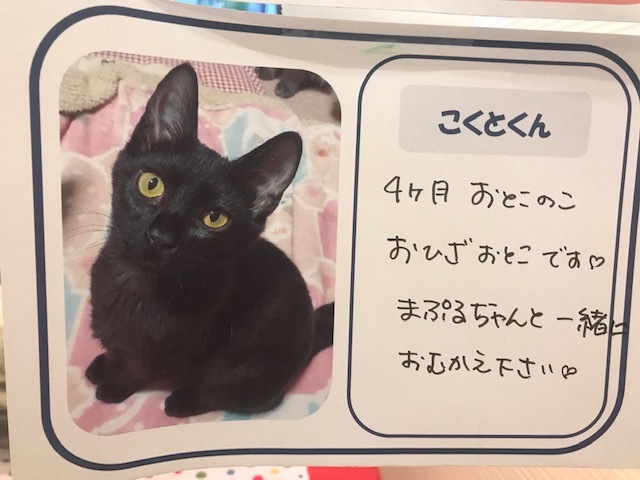 こくとくん
4ヶ月 おとこのこ
おひざおとこです♡
まぷるちゃんと一緒に
おむかえ下さい♡